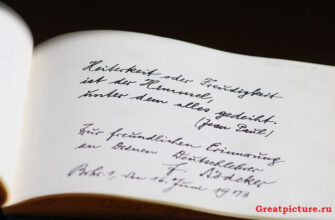 Heiterkeit oder Freudigkeit
ist der Himmel,
unter dem alles gedeiht.
(Jean Paul)
Zur freundlichen Erinnerung
an Deinen Deutschlehrer
den 16. Juni 1973
Greatpicture.ru